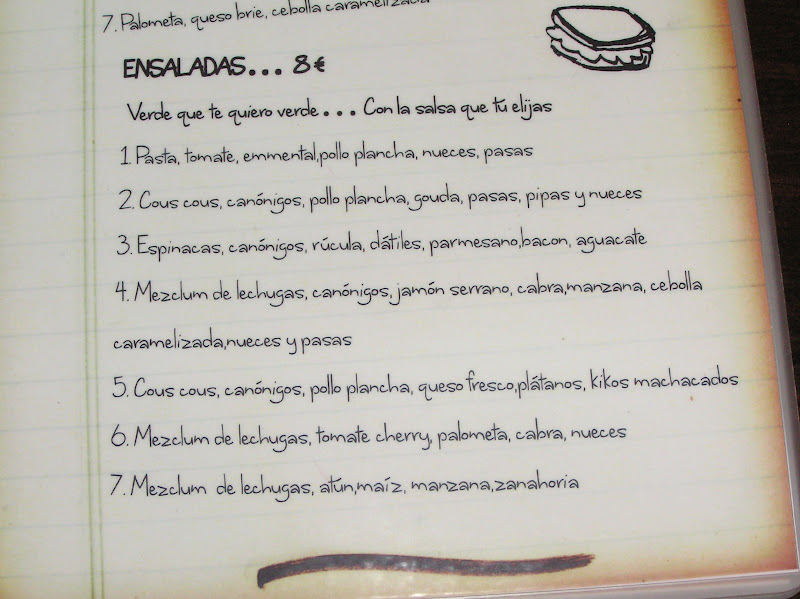 7. Palometa, queso brie, cebolla caramelizada
ENSALADAS... 8€
Verde que te quiero verde... Con la salsa que tú elijas
1. Pasta, tomate, emmental,pollo plancha, nueces, pasas
2. Cous cous, canónigos, pollo plancha, gouda, pasas, pipas y nueces
3. Espinacas, canónigos, rúcula, dátiles, parmesano,bacon, aguacate
4. Mezclum de lechugas, canónigos, jamón serrano, cabra,manzana, cebolla
caramelizada,nueces y pasas
5. Cous cous, canónigos, pollo plancha, queso fresco,plátanos, kikos machacados
6. Mezclum de lechugas, tomate cherry, palometa, cabra, nueces
7. Mezclum de lechugas, atún,maíz, manzana,zanahoria